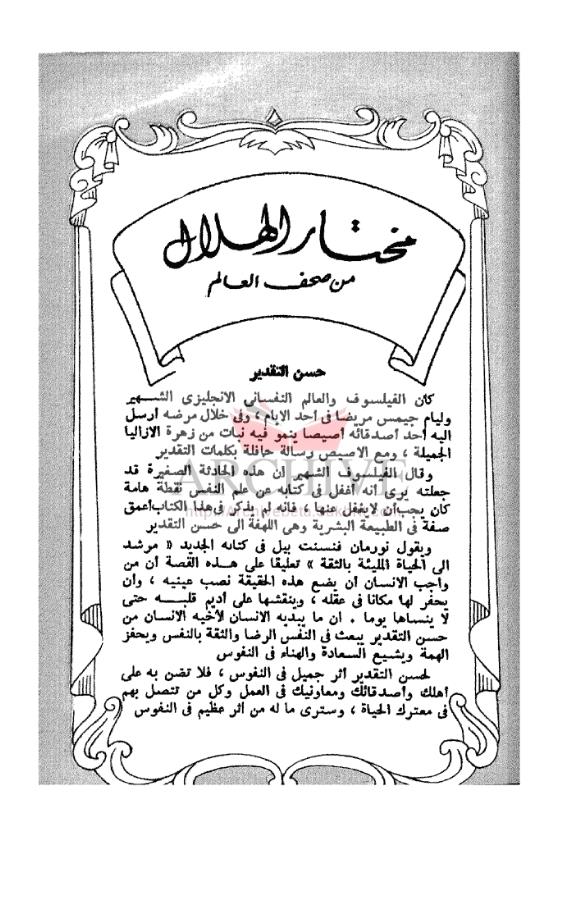 مختار الهلال
من صحف العالم
حسن التقدير
كان الفيلسوف والعالم النفسانى الانجليزى الشهير
وليام جيمس مريضا فى أحد الايام ، وفى خلال مرضه أرسل
اليه أحد أصدقائه أصيصا ينمو فيه نبات من زهرة الازاليا
الجميلة ، ومع الاصيص رسالة حافلة بكلمات التقدير
وقال الفيلسوف الشهير ان هذه الحادثة الصغيرة قد
جعلته يرى أنه أغفل فى كتابه عن علم النفس نقطة هامة
كان يجب أن لايغفل عنها ، فانه لم يذكر فى هذا الكتاب أعمق
صفة فى الطبيعة البشرية وهى اللهفة الى حسن التقدير
ويقول نورمان فنسنت بيل فى كتابه الجديد « مرشد
الى الحياة المليئة بالثقة » تعليقا على هذه القصة ان من
واجب الانسان أن يضع هذه الحقيقة نصب عينيه ، وأن
يحفر لها مكانا فى عقله ، وينقشها على أديم قلبه حتى
لا ينساها يوما . ان ما يبديه الانسان لأخيه الانسان من
حسن التقدير يبعث فى النفس الرضا والثقة بالنفس ويحفز
الهمة ويشيع السعادة والهناء فى النفوس
لحسن التقدير أثر جميل فى النفوس ، فلا تضن به على
أهلك وأصدقائك ومعاونيك فى العمل وكل من تتصل بهم
فى معترك الحياة ، وسترى ما له من أثر عظيم فى النفوس
ARCHIVE